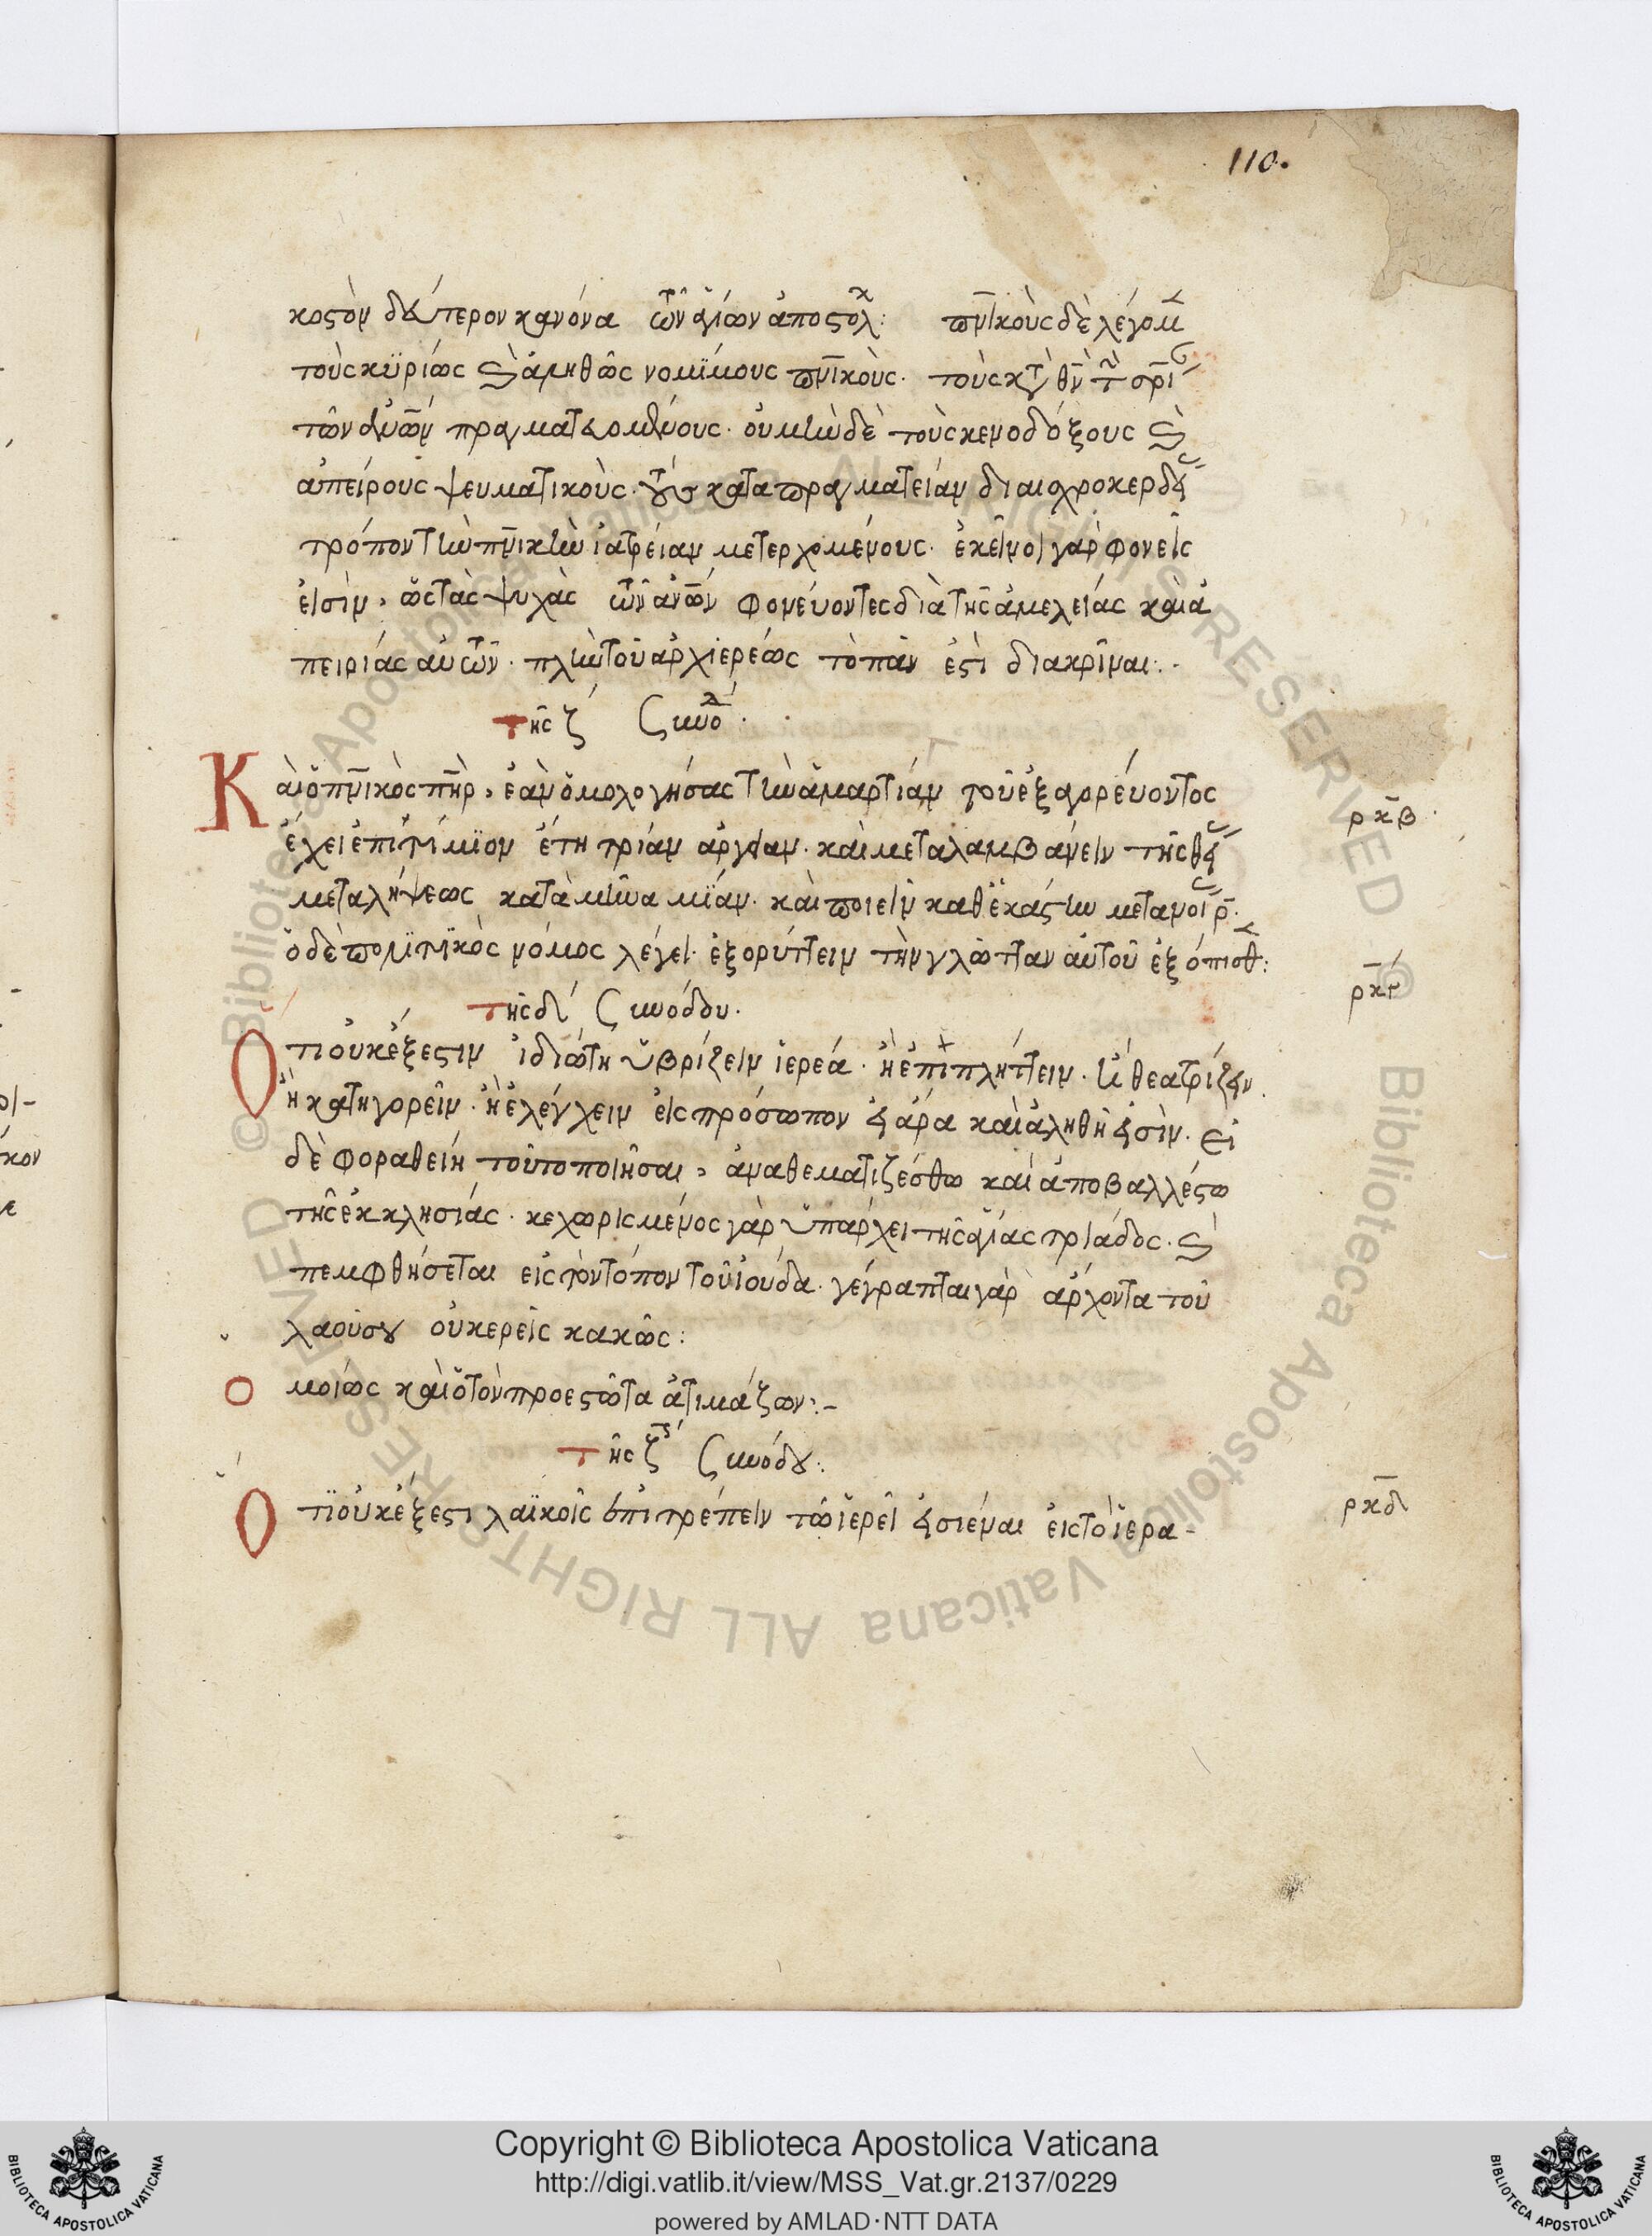 110.
κοστὸν δεύτερον κανόνα τῶν ἁγίων ἀποστολ: πνικοὺς δὲ λέγομ
τοὺς κϋρίως καὶ ἀληθῶς νομΐμους πνικοὺς. τοὺς κατ θν τὴν σρι
τῶν ἀνων πραγματευομένους. οὐ μὴν δὲ τοὺς κενοδόξους καὶ
ἀπείρους ψευματικοὺς. κατα πραγματείαν δι αισχροκερδῆ
τρόπον τὴν πνικὴν ἰατρείαν μετερχομένους. ἐκεῖνοι γὰρ φονεῖς
εἰσὶν, ὡς τὰς ψυχὰς τῶν ἀνων φονέυοντες διὰ τῆς ἀμελείας καὶ ἀ
πειρίας αὐτῶν. πλὴν τοῦ ἀρχιερέως τὸ πᾶν ἐστὶ διακρῖναι:.-
τῆς ζ Συνοδ.
Καὶ ὁ πνικὸς πηρ, ἐὰν ὁμολογήσας τὴν ἁμαρτίαν τοῦ ἐξαγορέυοντος
ἔχει ἐπιτίμϊον ἔτη τρίαν ἀργίαν. καὶ μεταλαμβάνειν τῆς θεί
μεταλήψεως κατὰ μῆνα μΐαν. καὶ ποιεῖν καθ ἑκάστην μετανοί ρ.
ὁ δὲ πολιτικὸς νόμος λέγει. ἐξορύττειν τὴν γλῶτταν αὐτοῦ ἐξόπισθ:
τῆς δ Συνόδου.
Ὅτι οὐκ ἔξεστιν ἰδιώτη ὑβρίζειν ἱερέα. ἢ ἐπιπλήττειν. ἢ θεατρίζειν.
ἢ κατηγορεῖν. ἢ ἐλέγχειν εἰς πρόσωπον εἰ ἄρα καὶ ἀληθῆ εἰσὶν. εἰ
δὲ φοραθείη τοῦτο ποιῆσαι, ἀναθεματιζέσθω καὶ ἀποβαλλέστω
τῆς ἐκκλησίας. κεχωρισμένος γὰρ ὑπάρχει τῆς ἁγίας τριάδος. καὶ
πεμφθήσεται εἰς τὸν τόπον τοῦ ἰούδα. γέγραπται γὰρ ἄρχοντα τοῦ
λαοῦ σου οὐκ ερεῖς κακῶς:
Ομοίως καὶ ὁ τὸν προεστῶτα ἀτιμάζων:-
τῆς ζ Συνόδου:.
Ὅτϊ οὐκ ἔξεστι λαϊκοῖς ἐπιτρέπειν τῶ ἱερεῖ εἰσιέναι εἰς τὸ ἱερα-
ρκβ
ρκγ
ρκδ
Copyright © Biblioteca Apostolica Vaticana
http://digi.vatlib.it/view/MSS_Vat.gr.2137/0229
powered by AMLAD·NTT DATA
BIBLIOTECA APOSTOLICA VATICANA
BIBLIOTECA APOSTOLICA VATICANA
© Biblioteca Apostolica Vaticana ALL RIGHTS RESERVED
© Biblioteca Apostolica Vaticana ALL RIGHTS RESERVED